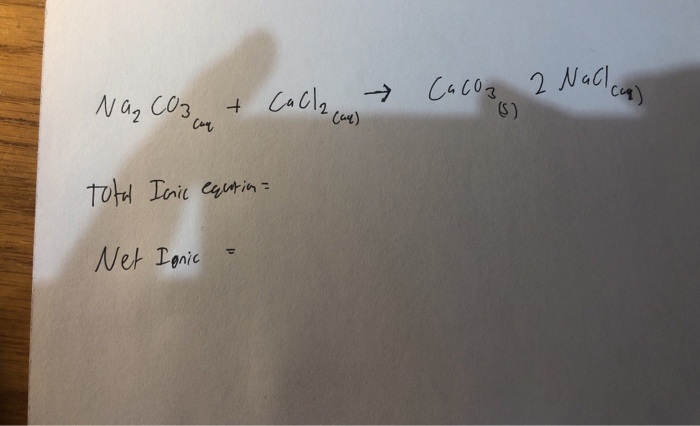 Na2 CO3 (aq + CaCl2 (aq) → CaCO3 (s) 2 NaCl (aq)
Total Ionic equation =
Net Ionic =